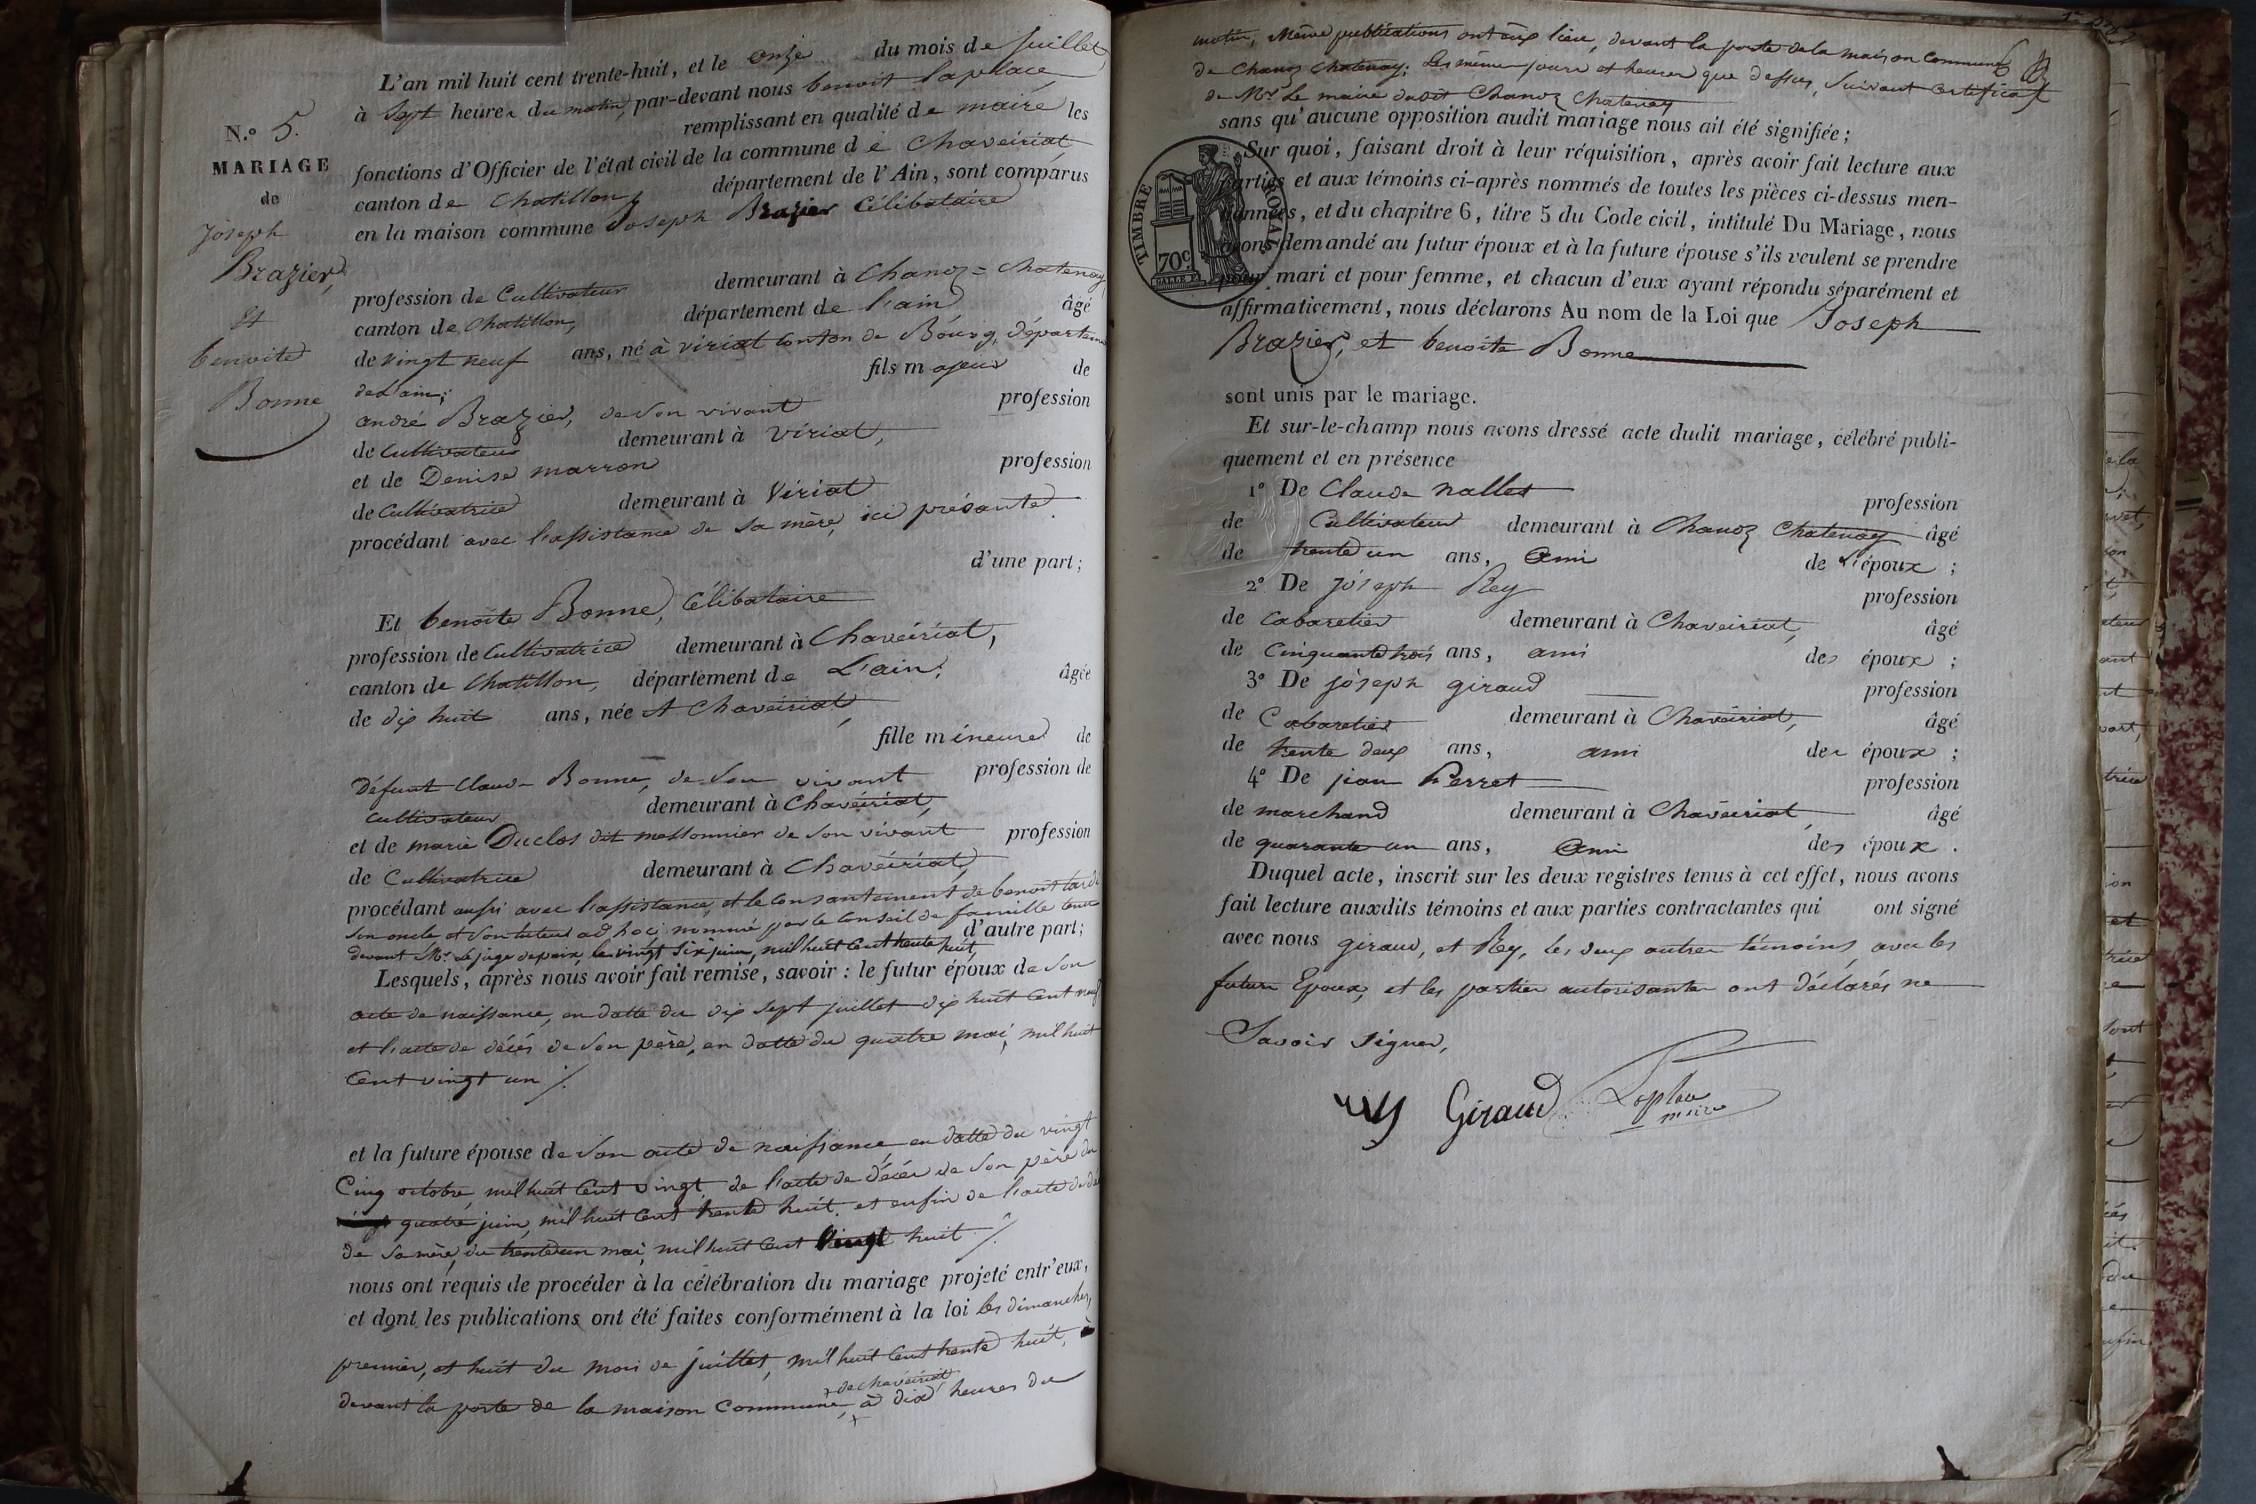 N.° 5.
MARIAGE
de
Joseph
Brazier,
Et
benoite
Bonne
L'an mil huit cent trente-huit, et le onze du mois de juillet,
à sept heures du matin, par-devant nous benoit laplace
remplissant en qualité de maire les
fonctions d'Officier de l'état civil de la commune de Chaveiriat
canton de Chatillon, département de l'Ain, sont comparus
en la maison commune Joseph Brazier Célibataire
profession de Cultivateur demeurant à Chanoz-Chatenay
canton de Chatillon, département de l'ain âgé
de vingt neuf ans, né à viriat Conton de Bourg, départem
de L'ain; fils majeur de
andré Brazier, de son vivant profession
de Cultivateur demeurant à Viriat,
et de Denise marron profession
de Cultivatrice demeurant à Viriat
procédant avec l'assistance de sa mère, ici présante.
d'une part;
Et benoîte Bonne, Célibataire
profession de Cultivatrice demeurant à Chaveiriat,
canton de Chatillon, département de L'ain; âgée
de dix huit ans, née A Chaveiriat,
fille mineure de
Défunt Claude Bonne, de son vivant profession de
Cultivateur demeurant à Chaveiriat,
et de marie Duclos dit messonnier de son vivant profession
de Cultivatrice demeurant à Chaveiriat,
procédant aussi avec l'assistance, et le Consantement de benoit
son oncle et son tuteur ad hoc, nommé par le Conseil de famille tenu
devant Mr. le juge de paix, le vingt six juin, mil huit Cent trente huit, d'autre part;
Lesquels, après nous avoir fait remise, savoir: le futur époux de son
acte de naissance, en datte du dix sept juillet dix huit Cent neuf
et l'acte de décés de son père, en datte du quatre mai, mil huit
Cent vingt un /.
et la future épouse de son acte de naissance, en datte du vingt
Cinq octobre, mil huit Cent vingt, de l'acte de décés de son père du
quatre juin, mil huit Cent trente huit. et enfin de l'acte de dé
de sa mère, du trente un mai, mil huit Cent Vingt huit /.
nous ont requis de procéder à la célébration du mariage projeté entr'eux,
et dont les publications ont été faites conformément à la loi les dimanches,
premier, et huit du mois de juillet, mil huit Cent trente huit,
de chaveiriat
devant la porte de la maison Commune, à dix heures du
matin, Même publications ont eux lieu, devant la porte de la maison Commune
de Chanoz Chatenay; les même jours et heures que dessus, Suivant Certificat
de Mr. Le maire dudit Chanoz Chatenay
sans qu'aucune opposition audit mariage nous ait été signifiée;
TIMBRE ROYAL
70c
Sur quoi, faisant droit à leur réquisition, après avoir fait lecture aux
parties et aux témoins ci-après nommés de toutes les pièces ci-dessus men-
tionnées, et du chapitre 6, titre 5 du Code civil, intitulé Du Mariage, nous
avons demandé au futur époux et à la future épouse s'ils veulent se prendre
pour mari et pour femme, et chacun d'eux ayant répondu séparément et
affirmativement, nous déclarons Au nom de la Loi que Joseph
Brazier, et benoite Bonne
sont unis par le mariage.
Et sur-le-champ nous avons dressé acte dudit mariage, célébré publi-
quement et en présence
1° De Claude nallet profession
de Cultivateur demeurant à Chanoz Chatenay âgé
de trente un ans, ami de l'époux;
2° De joseph Rey profession
de Cabaretier demeurant à Chaveiriat, âgé
de Cinquante trois ans, ami des époux;
3° De joseph giraud profession
de Cabaretier demeurant à Chaveiriat, âgé
de trente deux ans, ami des époux;
4° De jean Perret profession
de marchand demeurant à Chaveiriat, âgé
de quarante un ans, Ami des époux.
Duquel acte, inscrit sur les deux registres tenus à cet effet, nous avons
fait lecture auxdits témoins et aux parties contractantes qui ont signé
avec nous giraud, et Rey, les deux autres témoins, avec les
futurs Epoux, et les parties autorisantes ont déclarés ne
Savoir signer,
Rey Giraud Laplace
maire